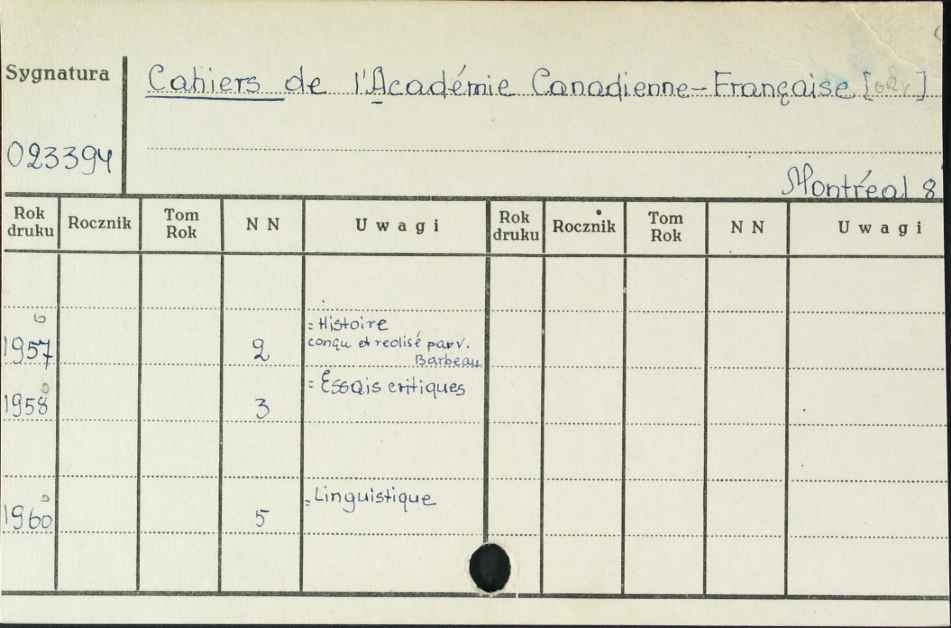 Sygnatura
Cahiers de l'Académie Canadienne-Française [
]
023394
Montréal 8
Rok druku Rocznik Tom Rok N N Uwagi Rok druku Rocznik Tom Rok N N Uwagi
1957 2 = Histoire
conçu et realisé par V.
Barbeau
1958 3 = Essais critiques
1960 5 = Linguistique